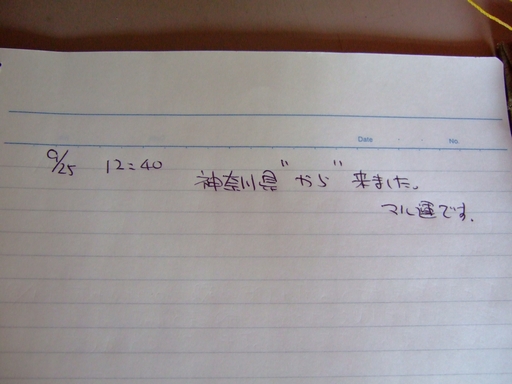 Date ・ ・ No.
9/25 12:40 神奈川県"から"来ました。
マル運です。